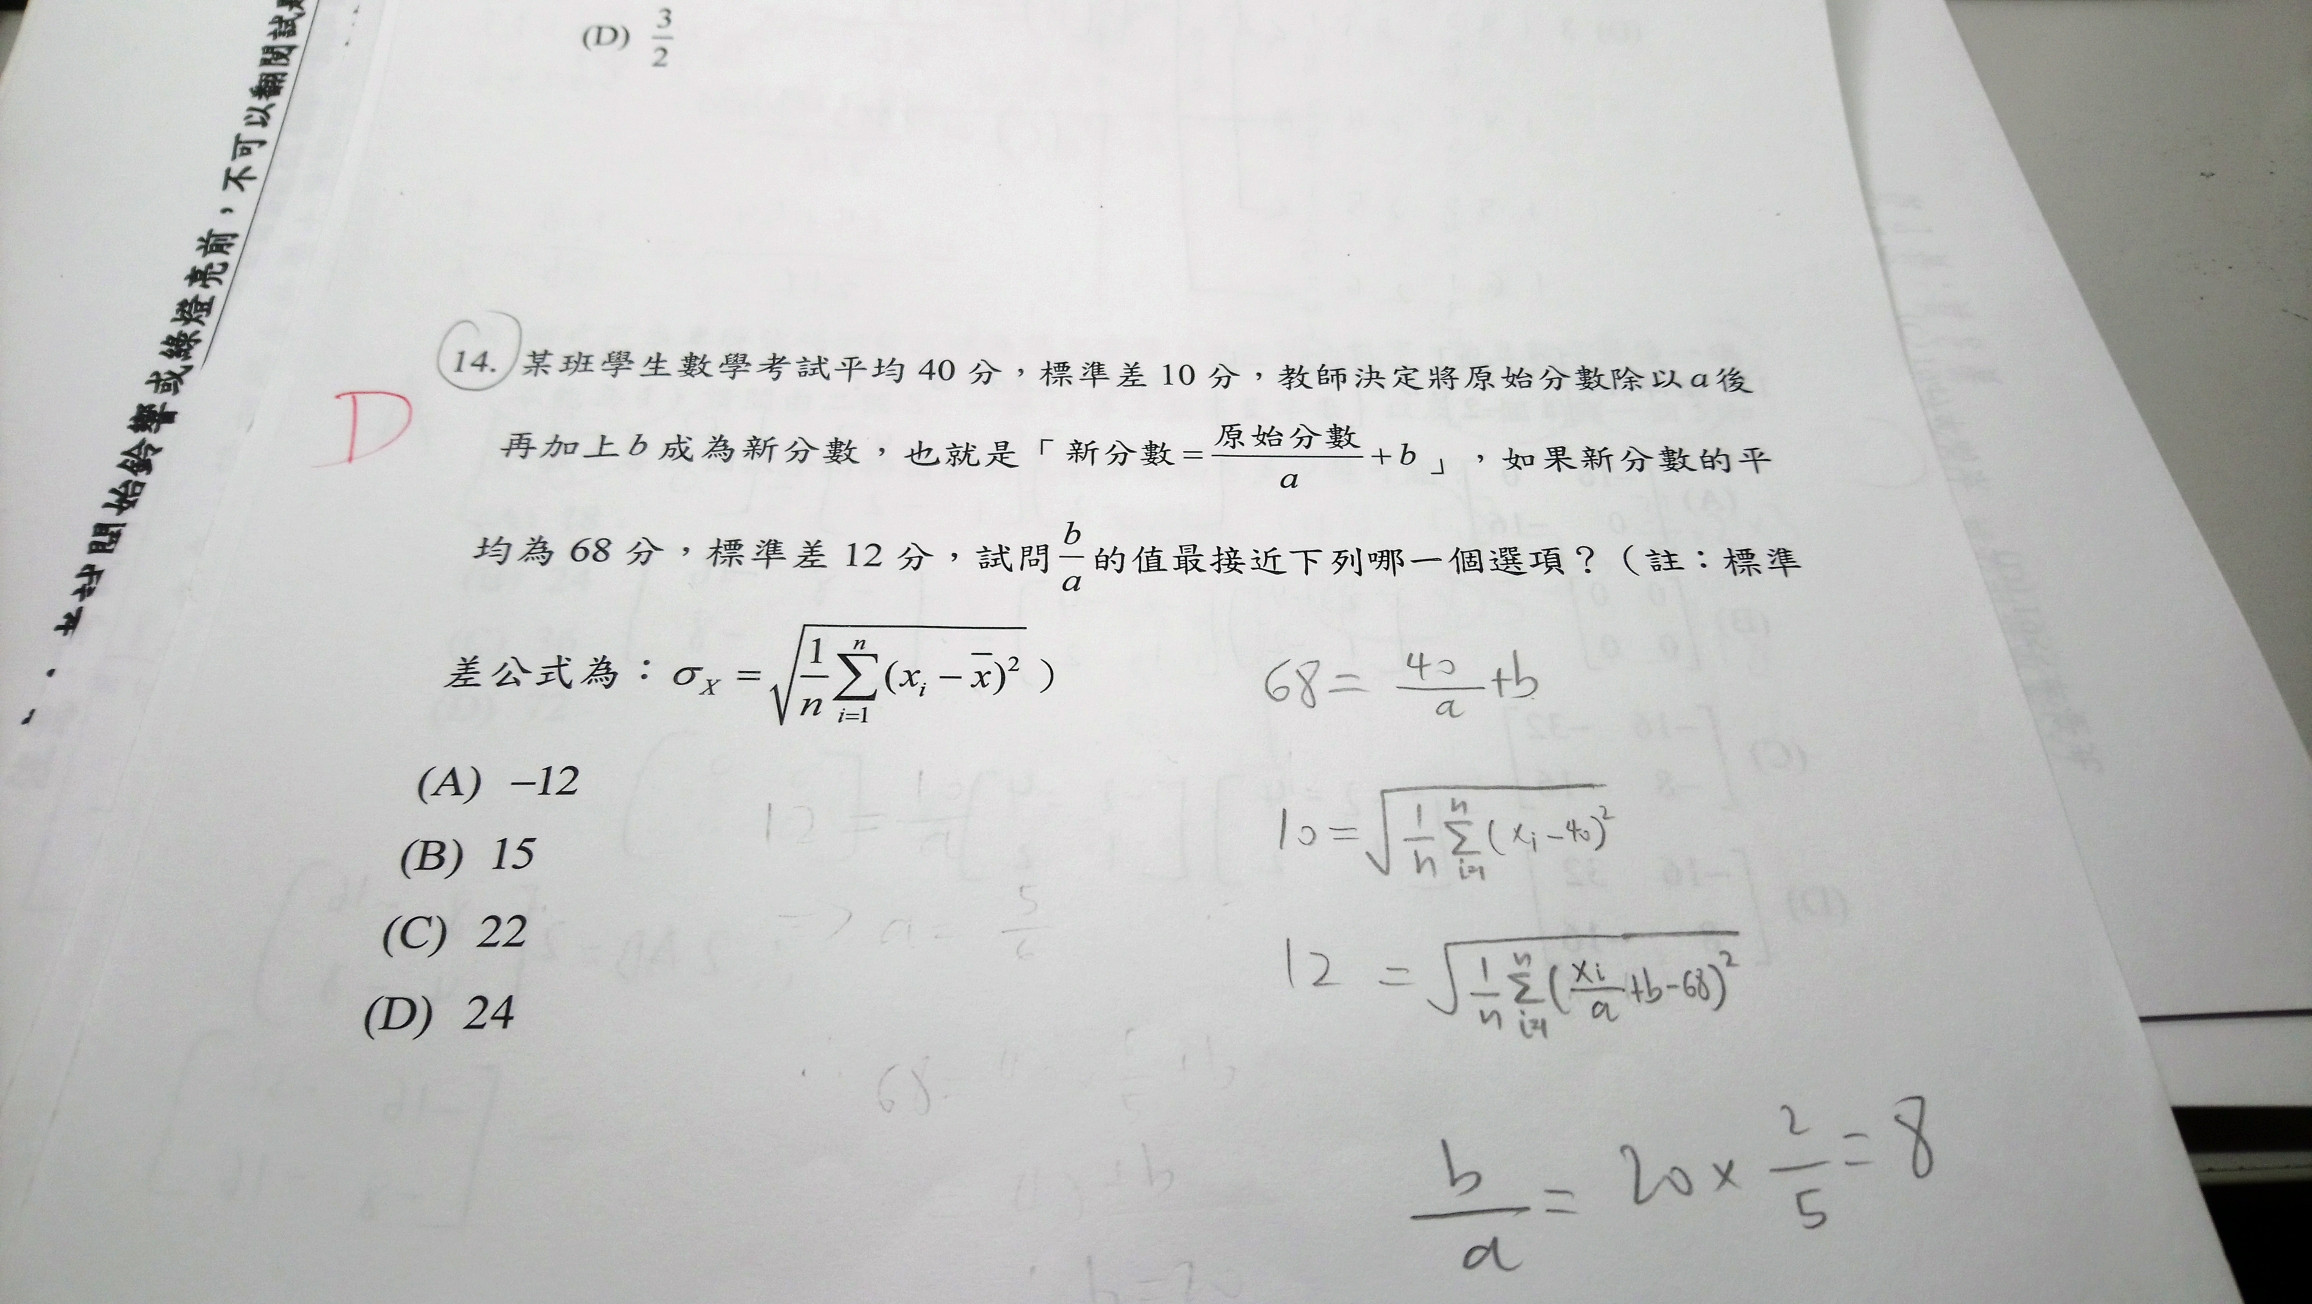 (D) 3/2
始鈴響或綠燈亮前，不可以翻閱試
14. 某班學生數學考試平均 40 分，標準差 10 分，教師決定將原始分數除以 a 後
D
再加上 b 成為新分數，也就是「新分數 = 原始分數/a + b」，如果新分數的平
均為 68 分，標準差 12 分，試問 b/a 的值最接近下列哪一個選項？（註：標準
差公式為：σ_X = √(1/n ∑_{i=1}^{n} (x_i − x̄)²)）
68 = 40/a + b
(A) −12
10 = √(1/n ∑_{i=1}^{n} (x_i − 40)²)
(B) 15
(C) 22
12 = √(1/n ∑_{i=1}^{n} (x_i/a + b − 68)²)
(D) 24
b/a = 20 × 2/5 = 8